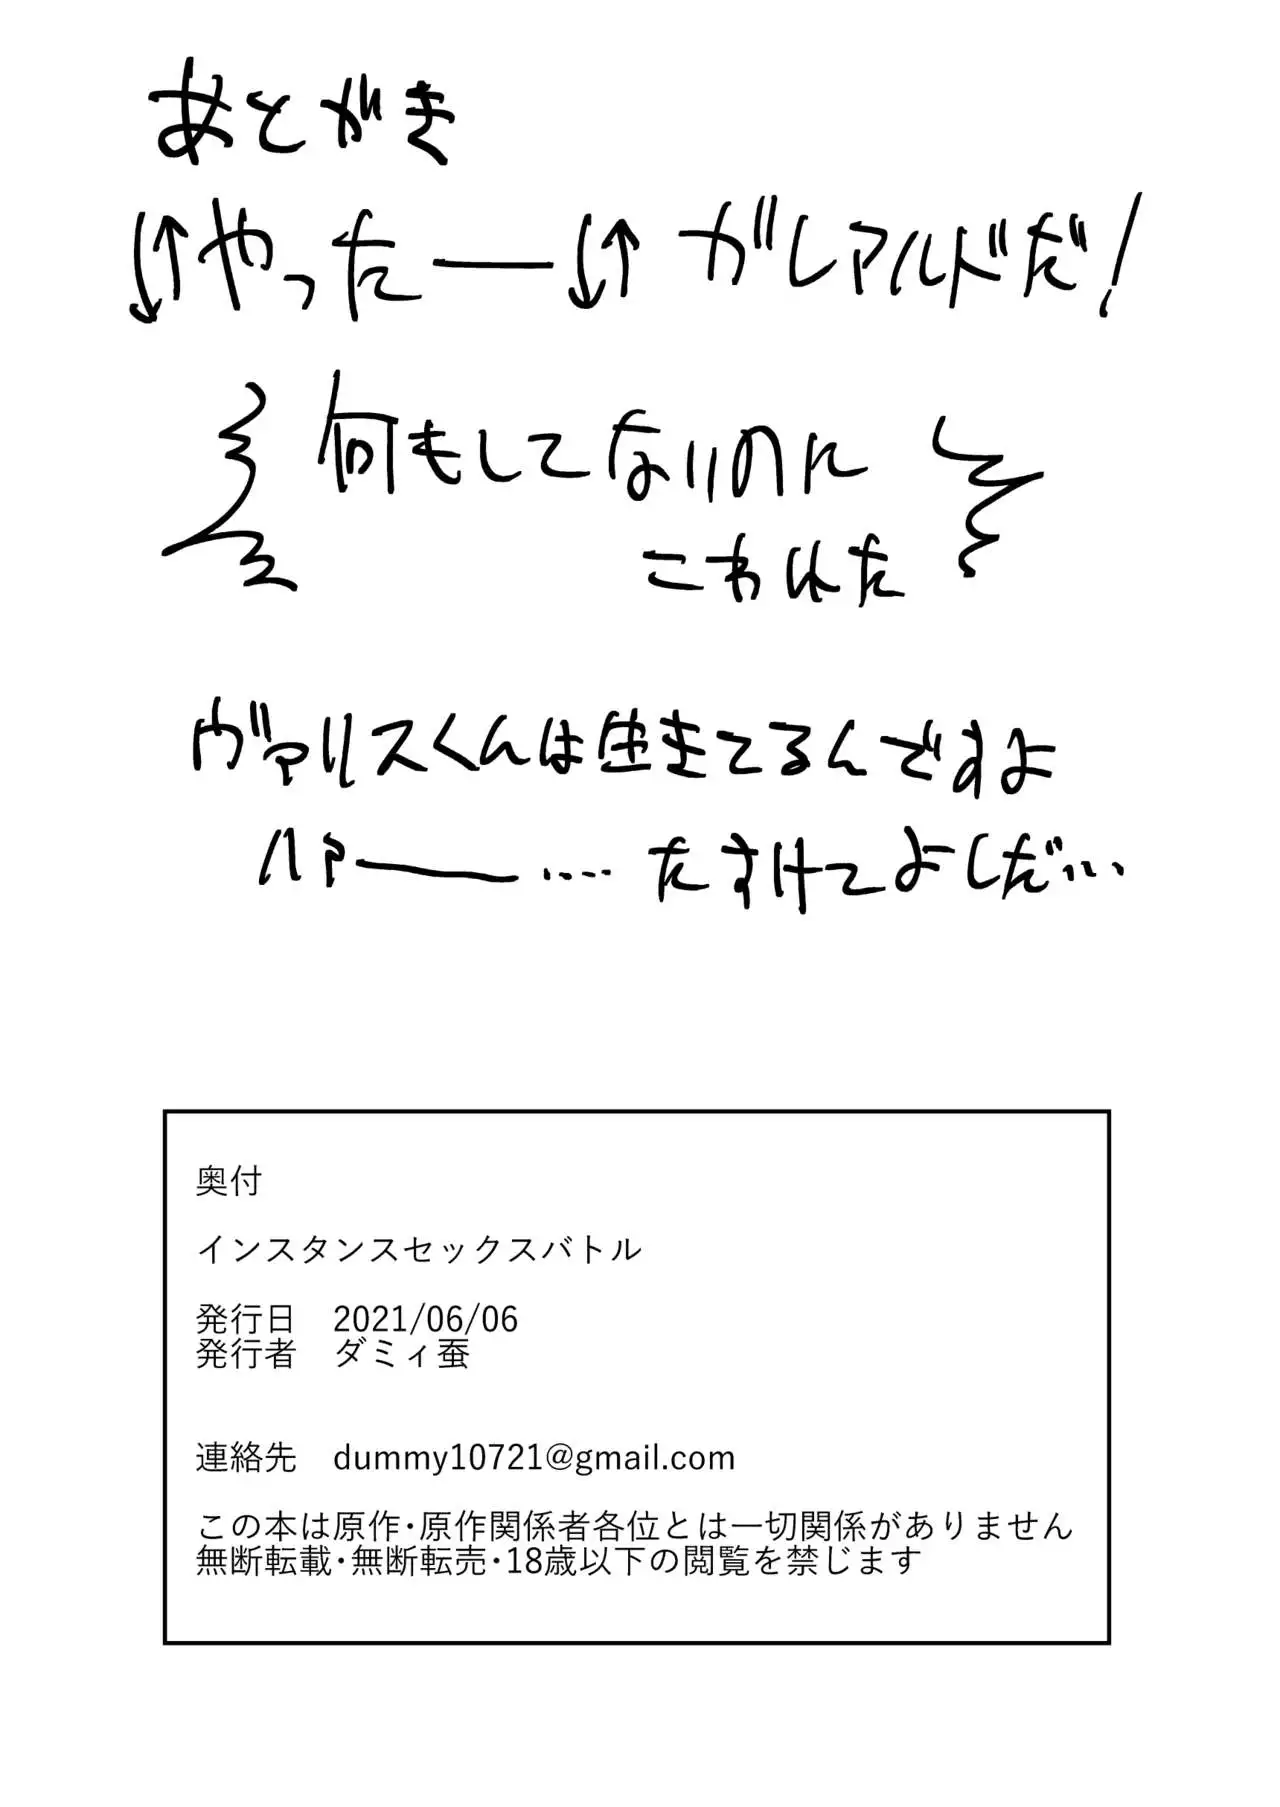 あとがき
↓↑やったー↓↑ ガレアルドだ!
何もしてないのに
こわれた
ヴァリスくんは生きてるんですよ
ハァー…. たすけてよしだ…
奥付
インスタンスセックスバトル
発行日 2021/06/06
発行者 ダミィ蚕
連絡先 dummy10721@gmail.com
この本は原作・原作関係者各位とは一切関係がありません
無断転載・無断転売・18歳以下の閲覧を禁じます